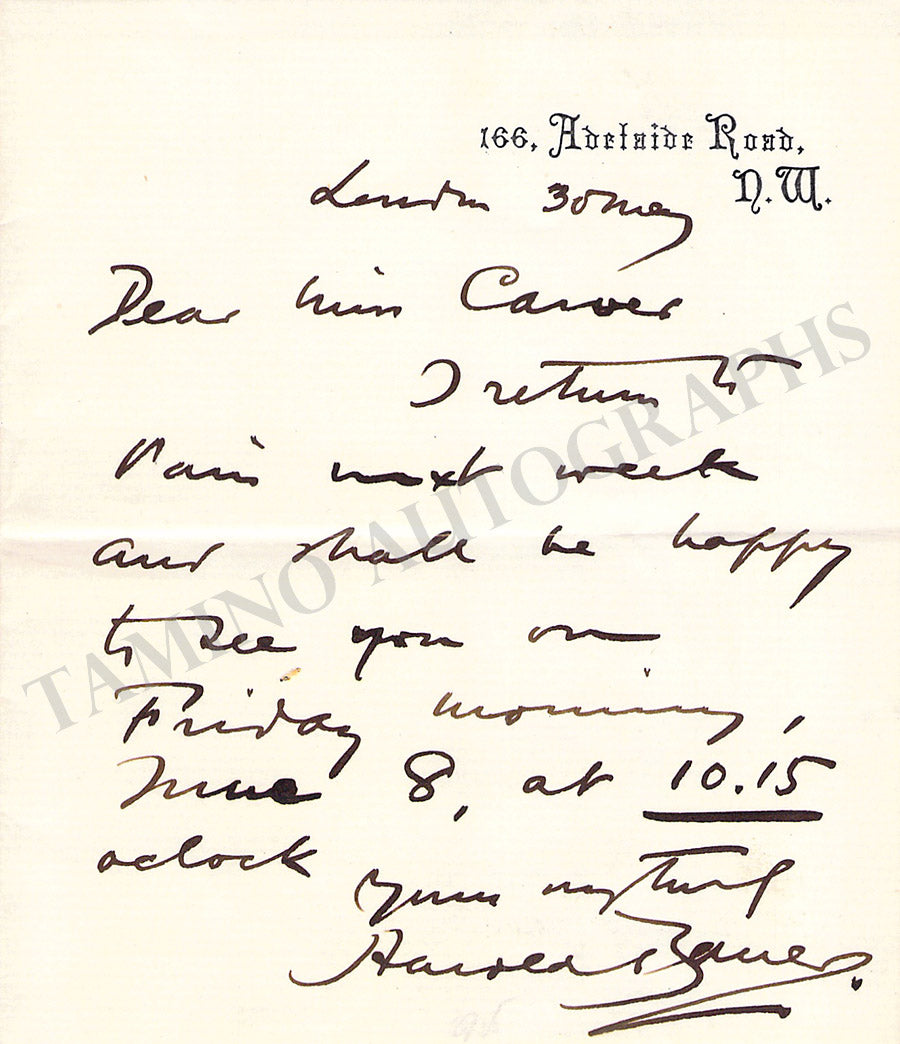 166, Adelaide Road,
N.W.
London 30 May
Dear Miss Carver
I return to
Paris next week
and shall be happy
to see you on
Friday morning,
June 8, at 10.15
oclock
yours very truly
Harold Bauer.
TAMINO AUTOGRAPHS